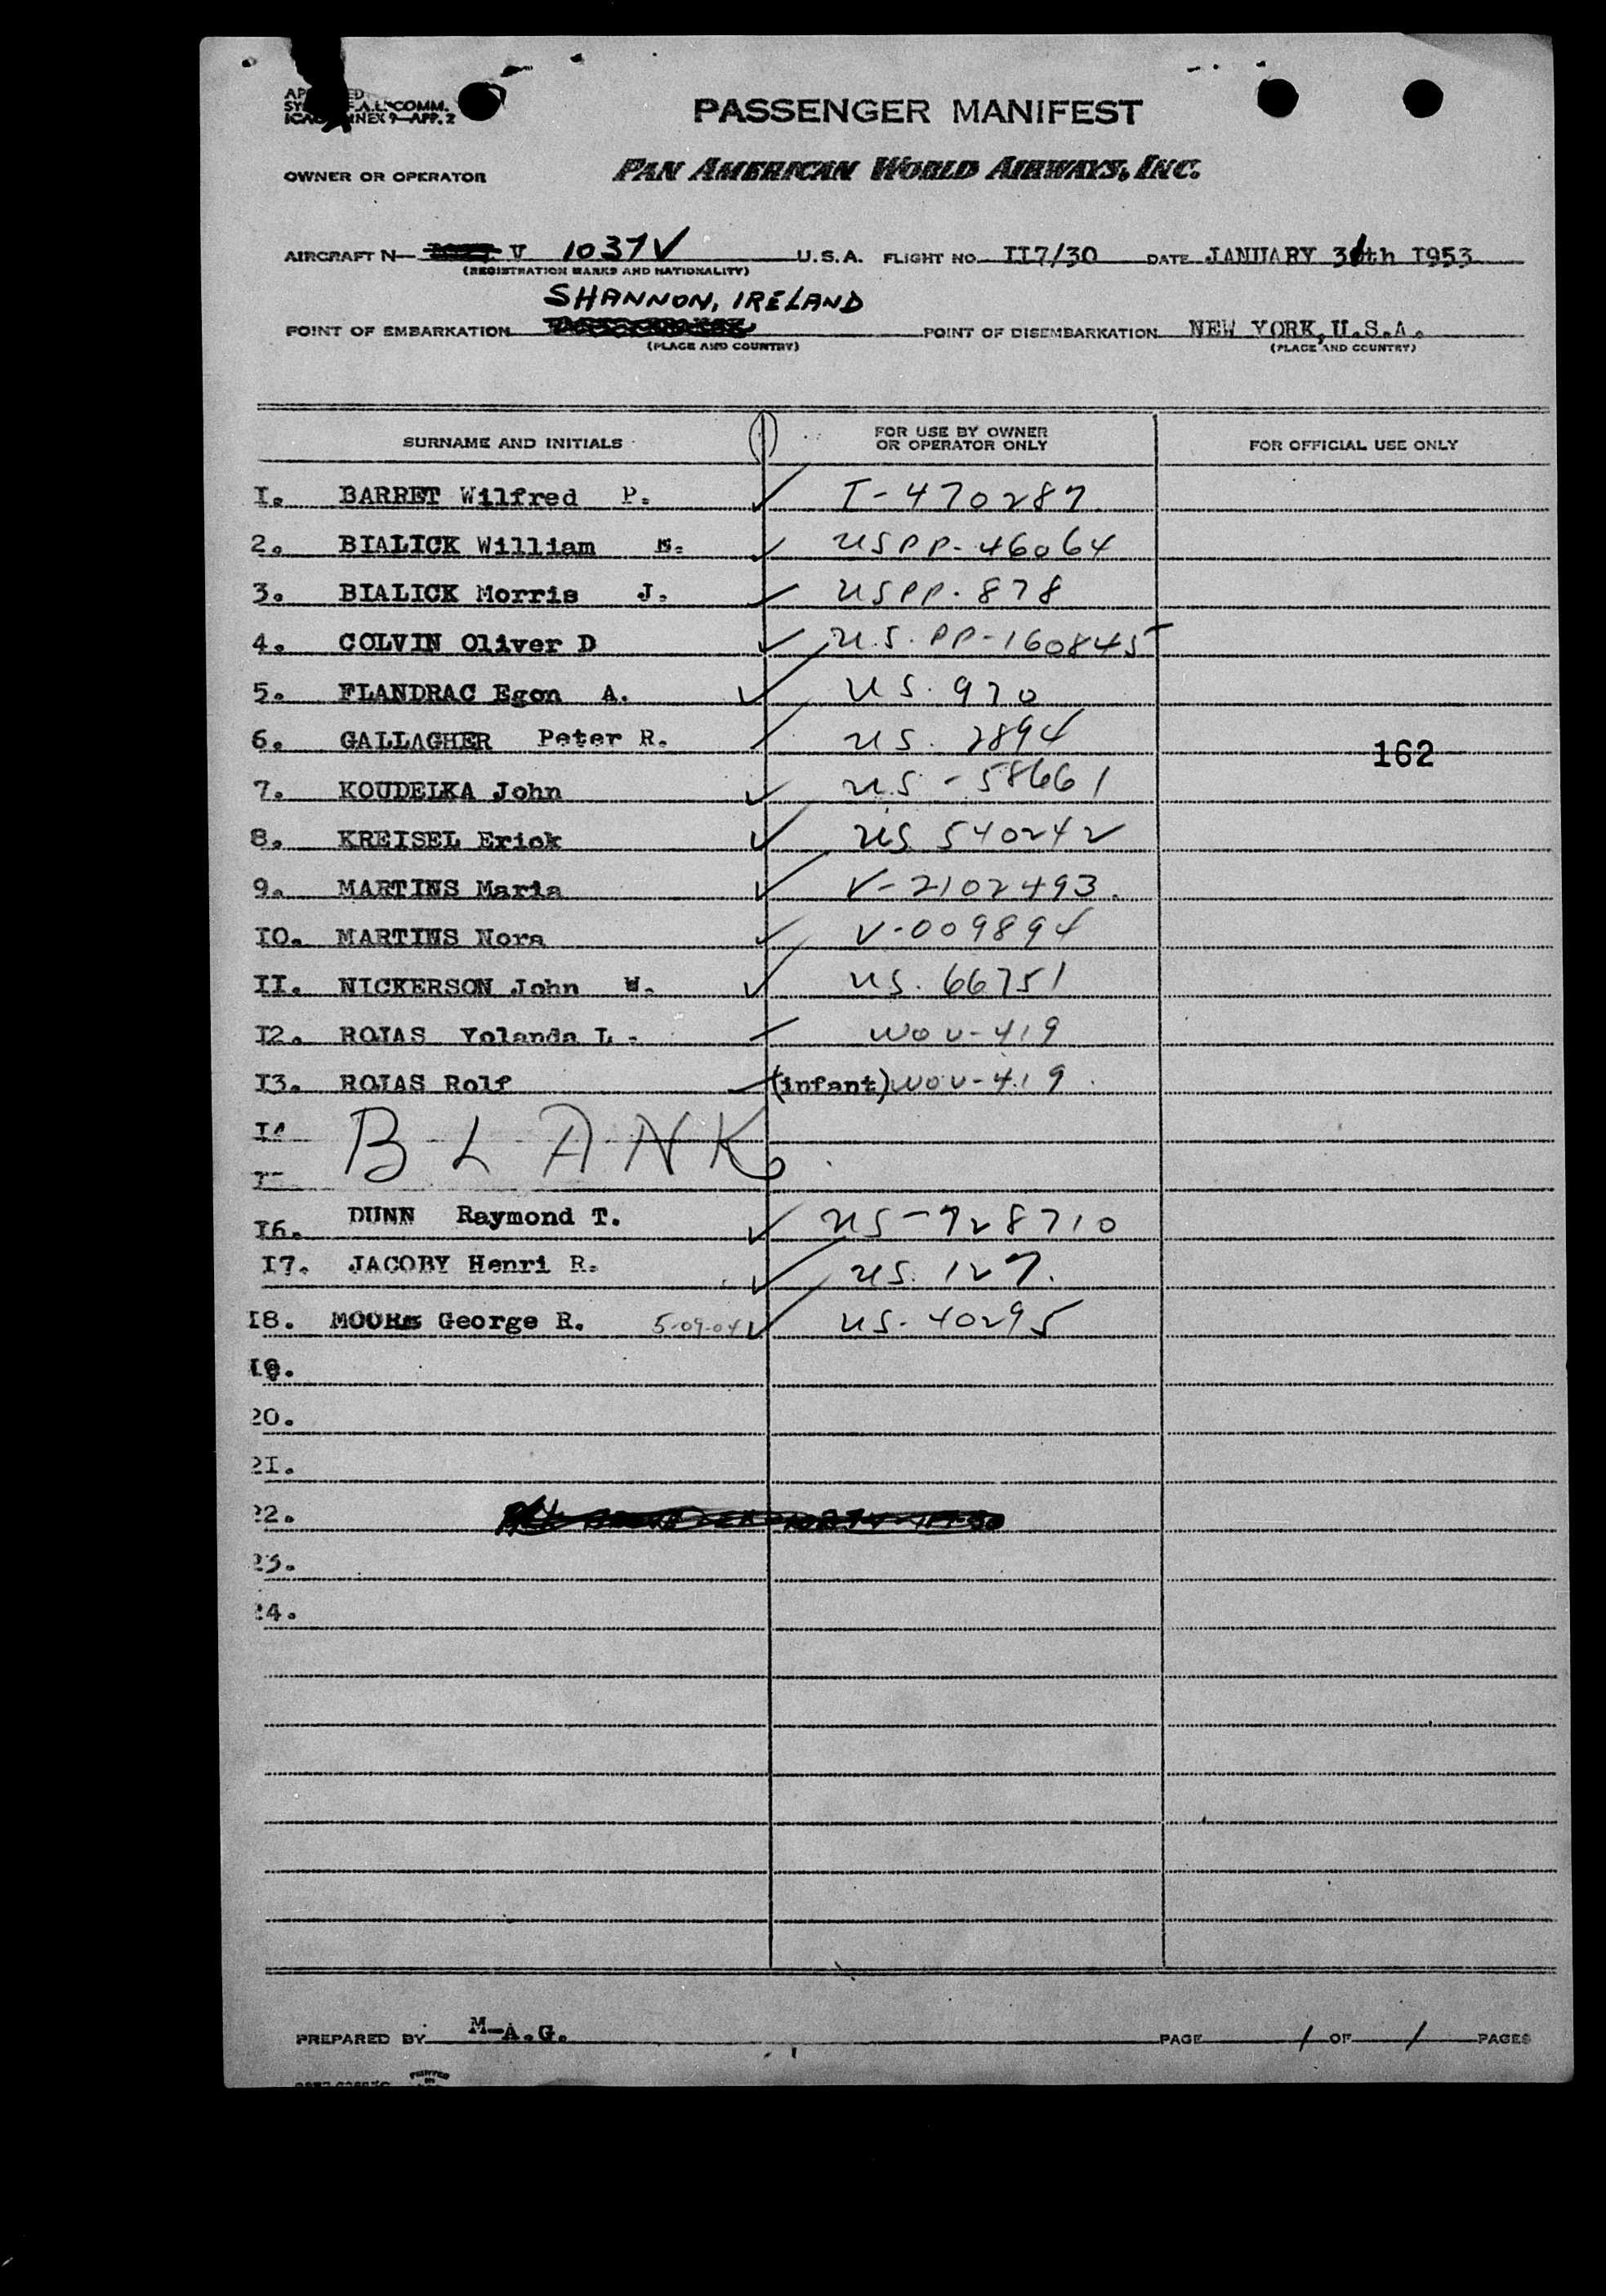 PASSENGER MANIFEST
F.A.L. COMM.
ICAO ANNEX 9—APP. 2
OWNER OR OPERATOR PAN AMERICAN WORLD AIRWAYS, INC.
AIRCRAFT N— V 1037V U.S.A. FLIGHT NO. II7/30 DATE JANUARY 31th I953
(REGISTRATION MARKS AND NATIONALITY)
SHANNON, IRELAND
POINT OF EMBARKATION POINT OF DISEMBARKATION NEW YORK, U.S.A.
(PLACE AND COUNTRY) (PLACE AND COUNTRY)
SURNAME AND INITIALS FOR USE BY OWNER OR OPERATOR ONLY FOR OFFICIAL USE ONLY
I. BARRET Wilfred P. I-470287
2. BIALICK William USPP-46064
3. BIALICK Morris J. USPP-878
4. COLVIN Oliver D U.S. PP-160845
5. FLANDRAC Egon A. US. 970
6. GALLAGHER Peter R. US. 2894
162
7. KOUDELKA John US-58661
8. KREISEL Erick US 540242
9. MARTINS Maria V-2102493.
IO. MARTINS Nora V-009894
II. NICKERSON John W. US. 66751
I2. ROJAS Yolanda L. WOV-419
I3. ROJAS Rolf (infant) WOV-419
I4
BLANK
I6. DUNN Raymond T. US-728710
I7. JACOBY Henri R. US. 127.
I8. MOORE George R. 5-09-04 US-40295
I9.
20.
2I.
22.
23.
24.
PREPARED BY M-A.G. PAGE 1 OF 1 PAGES
PRINTED
IN